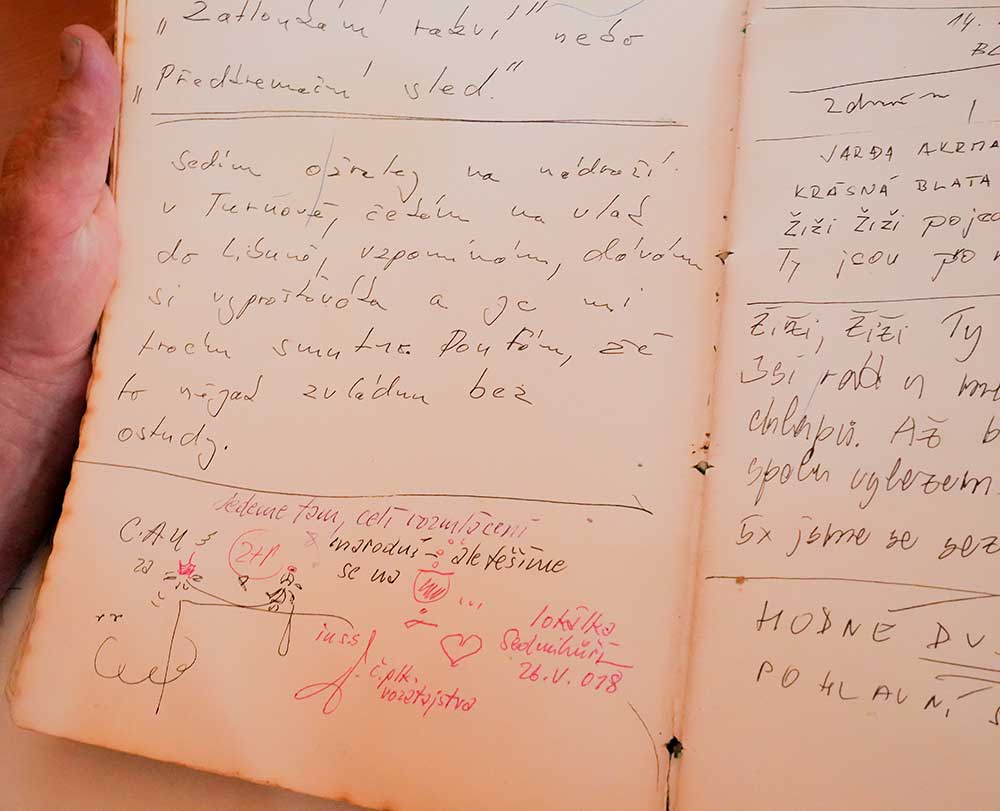 „Zatloukání ražví" nebo
„Předtremační sled."
Sedím ožralej na nádraží
v Turnově, čekám na vlak
do Libuně, vzpomínám, dávám
si vyprošťováka a je mi
trochu smutno. Doufám, že
to nějak zvládnu bez
ostudy.
Jedeme tam, celí rozmlácení
C.A.U
2+1
marodní - ale těšíme
za
se na
...
in.s.s
lokálka
Sedmihůrk
26.V.018
č.plk.
vozatajstva
14.
BL
JARDA AKRMA
KRÁSNÁ BLATA
Žiži Žiži pojed
Ty jsou pro
Žiži, Žiži Ty
Jsi rád u
chlapů. Až b
spolu vylezem
5x jsme se sez
HODNĚ DV
POHLAVNÍ S